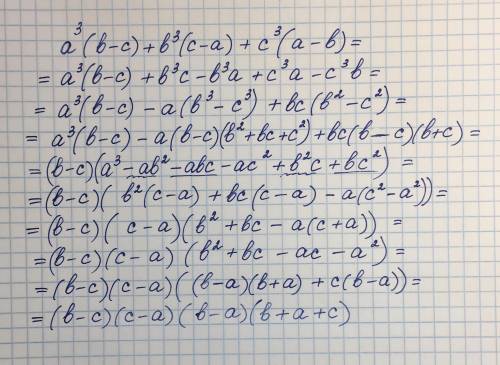 a³(b-c)+b³(c-a)+c³(a-b)=
=a³(b-c)+b³c-b³a+c³a-c³b=
=a³(b-c)-a(b³-c³)+bc(b²-c²)=
=a³(b-c)-a(b-c)(b²+bc+c²)+bc(b-c)(b+c)=
=(b-c)(a³-ab²-abc-ac²+b²c+bc²)=
=(b-c)(b²(c-a)+bc(c-a)-a(c²-a²))=
=(b-c)(c-a)(b²+bc-a(c+a))=
=(b-c)(c-a)(b²+bc-ac-a²)=
=(b-c)(c-a)((b-a)(b+a)+c(b-a))=
=(b-c)(c-a)(b-a)(b+a+c)